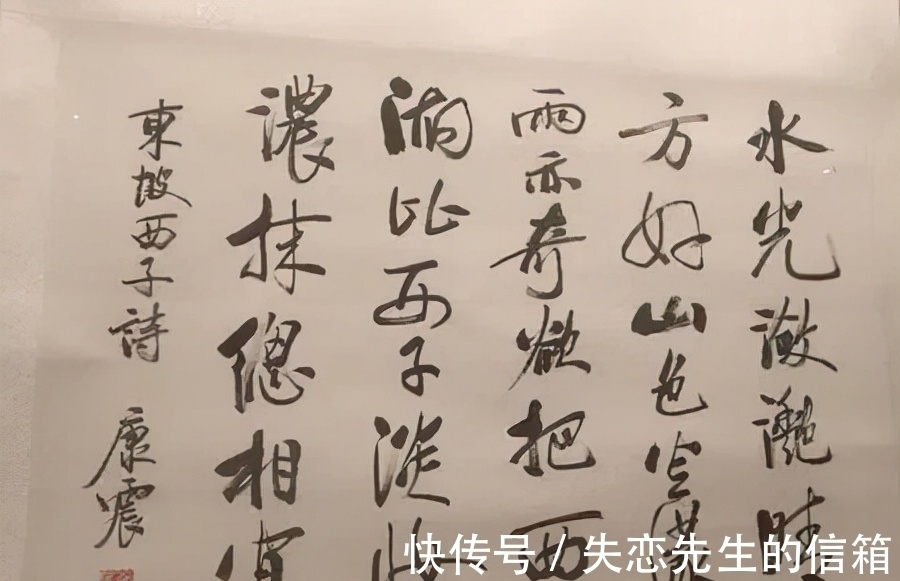 水光瀲灩晴
方好山色空濛
雨亦奇欲把西
湖比西子淡妝
濃抹總相宜
東坡西子詩 康震
快传号 / 失恋先生的信箱